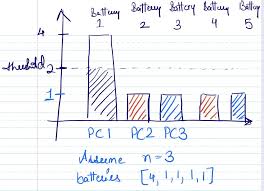 Battery Battery Battery Battery Battery
1 2 3 4 5
4
threshold 2
1
PC1 PC2 PC3
Assume n=3
batteries [4, 1, 1, 1, 1]